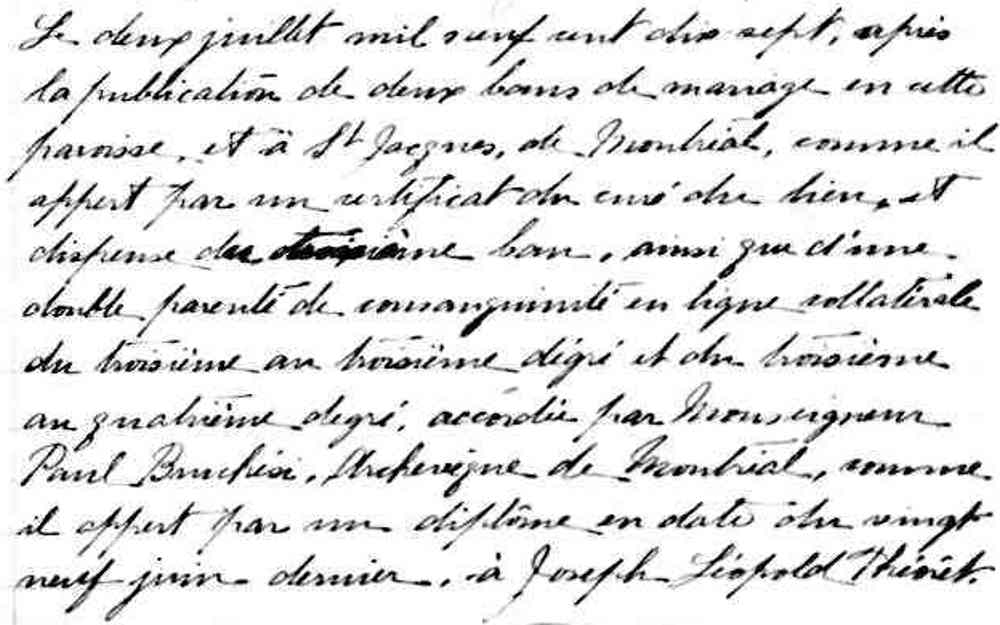 Le deux juillet mil neuf cent dix sept, après
la publication de deux bans de mariage en cette
paroisse, et à St Jacques, de Montréal, comme il
appert par un certificat du curé du lieu, et
dispense du troisième ban, ainsi que d'une
double parenté de consanguinité en ligne collatérale
du troisième au troisième dégré et du troisième
au quatrième degré, accordée par Monseigneur
Paul Bruchési, Archevêque de Montréal, comme
il appert par un diplôme en date du vingt
neuf juin dernier, à Joseph Léopold Théorêt.